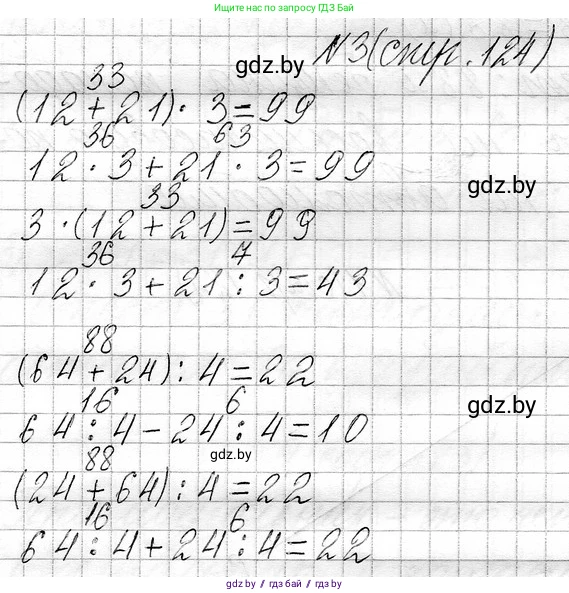 Ищите нас по запросу ГДЗ Бай
N3(стр. 124)
gdz.by
33
(12 + 21) · 3 = 99
36 63
12 · 3 + 21 · 3 = 99
gdz.by
33
3 · (12 + 21) = 99
36 7
12 · 3 + 21 : 3 = 43
88
(64 + 24) : 4 = 22
gdz.by
16 6
64 : 4 - 24 : 4 = 10
gdz.by
88
(24 + 64) : 4 = 22
16 6
64 : 4 + 24 : 4 = 22
gdz.by / гдз бай / gdz.by